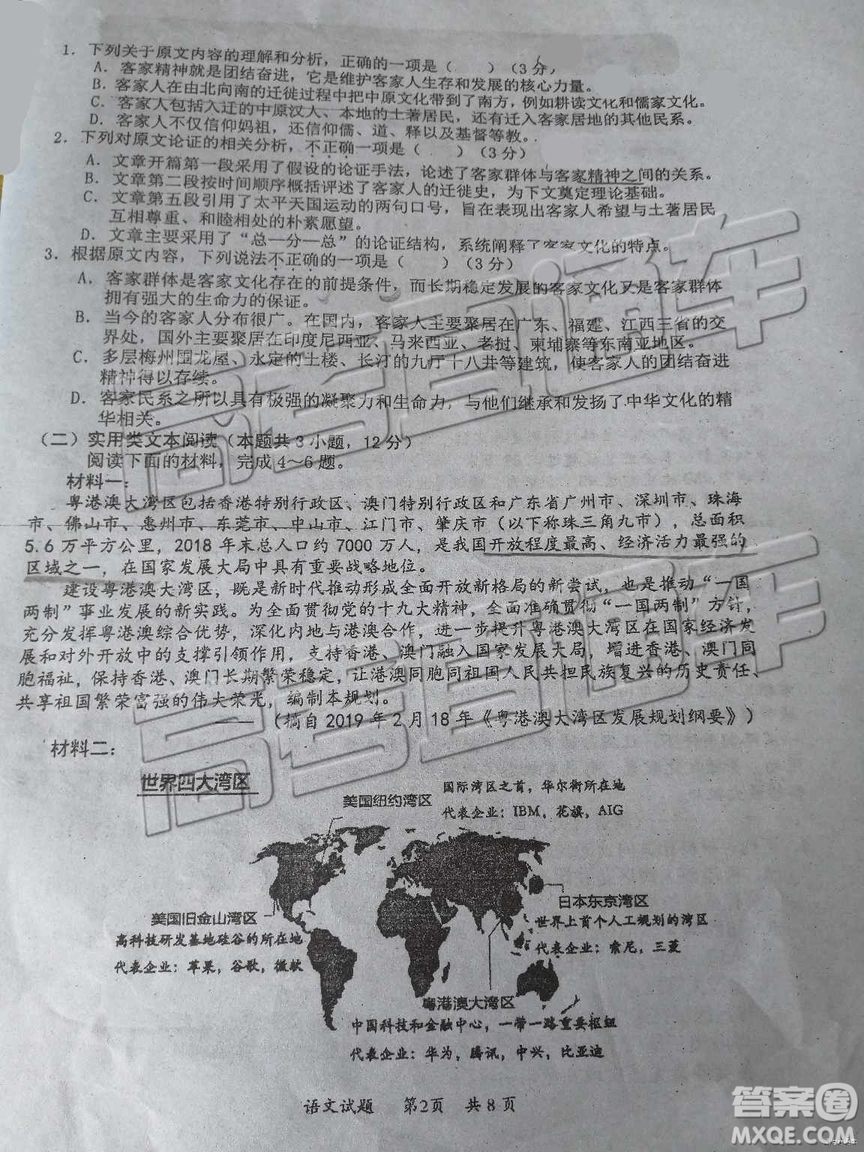 1. 下列关于原文内容的理解和分析，正确的一项是（ ）（3分）
A. 客家精神就是团结奋进，它是维护客家人生存和发展的核心力量。
B. 客家人在由北向南的迁徙过程中把中原文化带到了南方，例如耕读文化和儒家文化。
C. 客家人包括入迁的中原汉人、本地的土著居民，还有迁入客家居地的其他民系。
D. 客家人不仅信仰妈祖，还信仰儒、道、释以及基督等教。
2. 下列对原文论证的相关分析，不正确一项是（ ）（3分）
A. 文章开篇第一段采用了假设的论证手法，论述了客家群体与客家精神之间的关系。
B. 文章第二段按时间顺序概括评述了客家人的迁徙史，为下文奠定理论基础。
C. 文章第五段引用了太平天国运动的两句口号，旨在表现出客家人希望与土著居民
互相尊重、和睦相处的朴素愿望。
D. 文章主要采用了“总—分—总”的论证结构，系统阐释了客家文化的特点。
3. 根据原文内容，下列说法不正确的一项是（ ）（3分）
A. 客家群体是客家文化存在的前提条件，而长期稳定发展的客家文化又是客家群体
拥有强大的生命力的保证。
B. 当今的客家人分布很广。在国内，客家人主要聚居在广东、福建、江西三省的交
界处，国外主要聚居在印度尼西亚、马来西亚、老挝、柬埔寨等东南亚地区。
C. 多层梅州围龙屋、永定的土楼、长汀的九厅十八井等建筑，使客家人的团结奋进
精神得以存续。
D. 客家民系之所以具有极强的凝聚力和生命力，与他们继承和发扬了中华文化的精
华相关。
（二）实用类文本阅读（本题共3小题，12分）
阅读下面的材料，完成4～6题。
材料一：
粤港澳大湾区包括香港特别行政区、澳门特别行政区和广东省广州市、深圳市、珠海
市、佛山市、惠州市、东莞市、中山市、江门市、肇庆市（以下称珠三角九市），总面积
5.6万平方公里，2018年末总人口约7000万人，是我国开放程度最高、经济活力最强的
区域之一，在国家发展大局中具有重要战略地位。
建设粤港澳大湾区，既是新时代推动形成全面开放新格局的新尝试，也是推动“一国
两制”事业发展的新实践。为全面贯彻党的十九大精神，全面准确贯彻“一国两制”方针，
充分发挥粤港澳综合优势，深化内地与港澳合作，进一步提升粤港澳大湾区在国家经济发
展和对外开放中的支撑引领作用，支持香港、澳门融入国家发展大局，增进香港、澳门同
胞福祉，保持香港、澳门长期繁荣稳定，让港澳同胞同祖国人民共担民族复兴的历史责任、
共享祖国繁荣富强的伟大荣光，编制本规划。
（摘自2019年2月18年《粤港澳大湾区发展规划纲要》）
材料二：
世界四大湾区
美国纽约湾区
国际湾区之首，华尔街所在地
代表企业：IBM，花旗，AIG
美国旧金山湾区
高科技研发基地硅谷的所在地
代表企业：苹果，谷歌，微软
日本东京湾区
世界上首个人工规划的湾区
代表企业：索尼，三菱
粤港澳大湾区
中国科技和金融中心，一带一路重要枢纽
代表企业：华为，腾讯，中兴，比亚迪
语文试题 第2页 共8页
高考直通车
高考直通车
答案圈
MXQE.COM